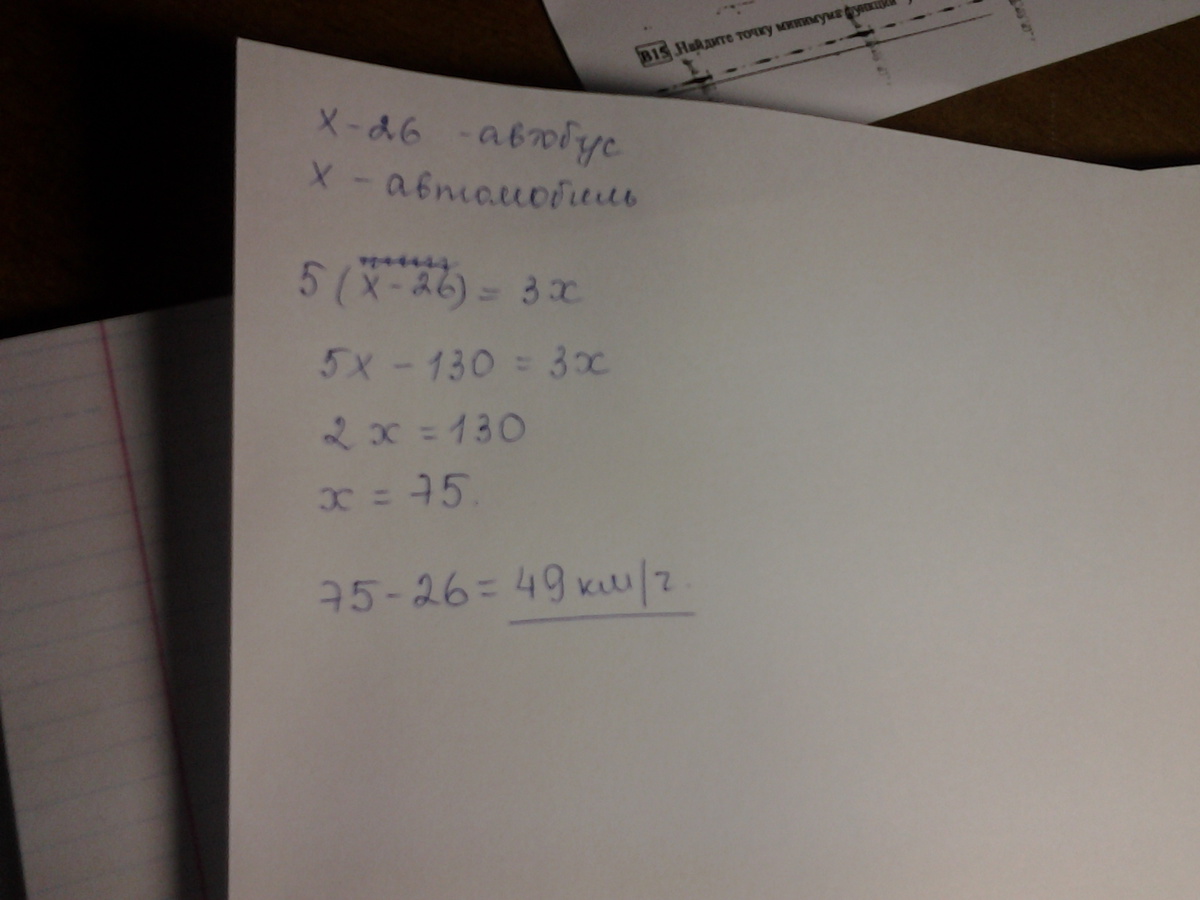 В15 Найдите точку минимума функции
х-26 -автобус
х - автомобиль
5(х-26) = 3х
5х - 130 = 3х
2х = 130
х = 75.
75-26= 49 км/ч.